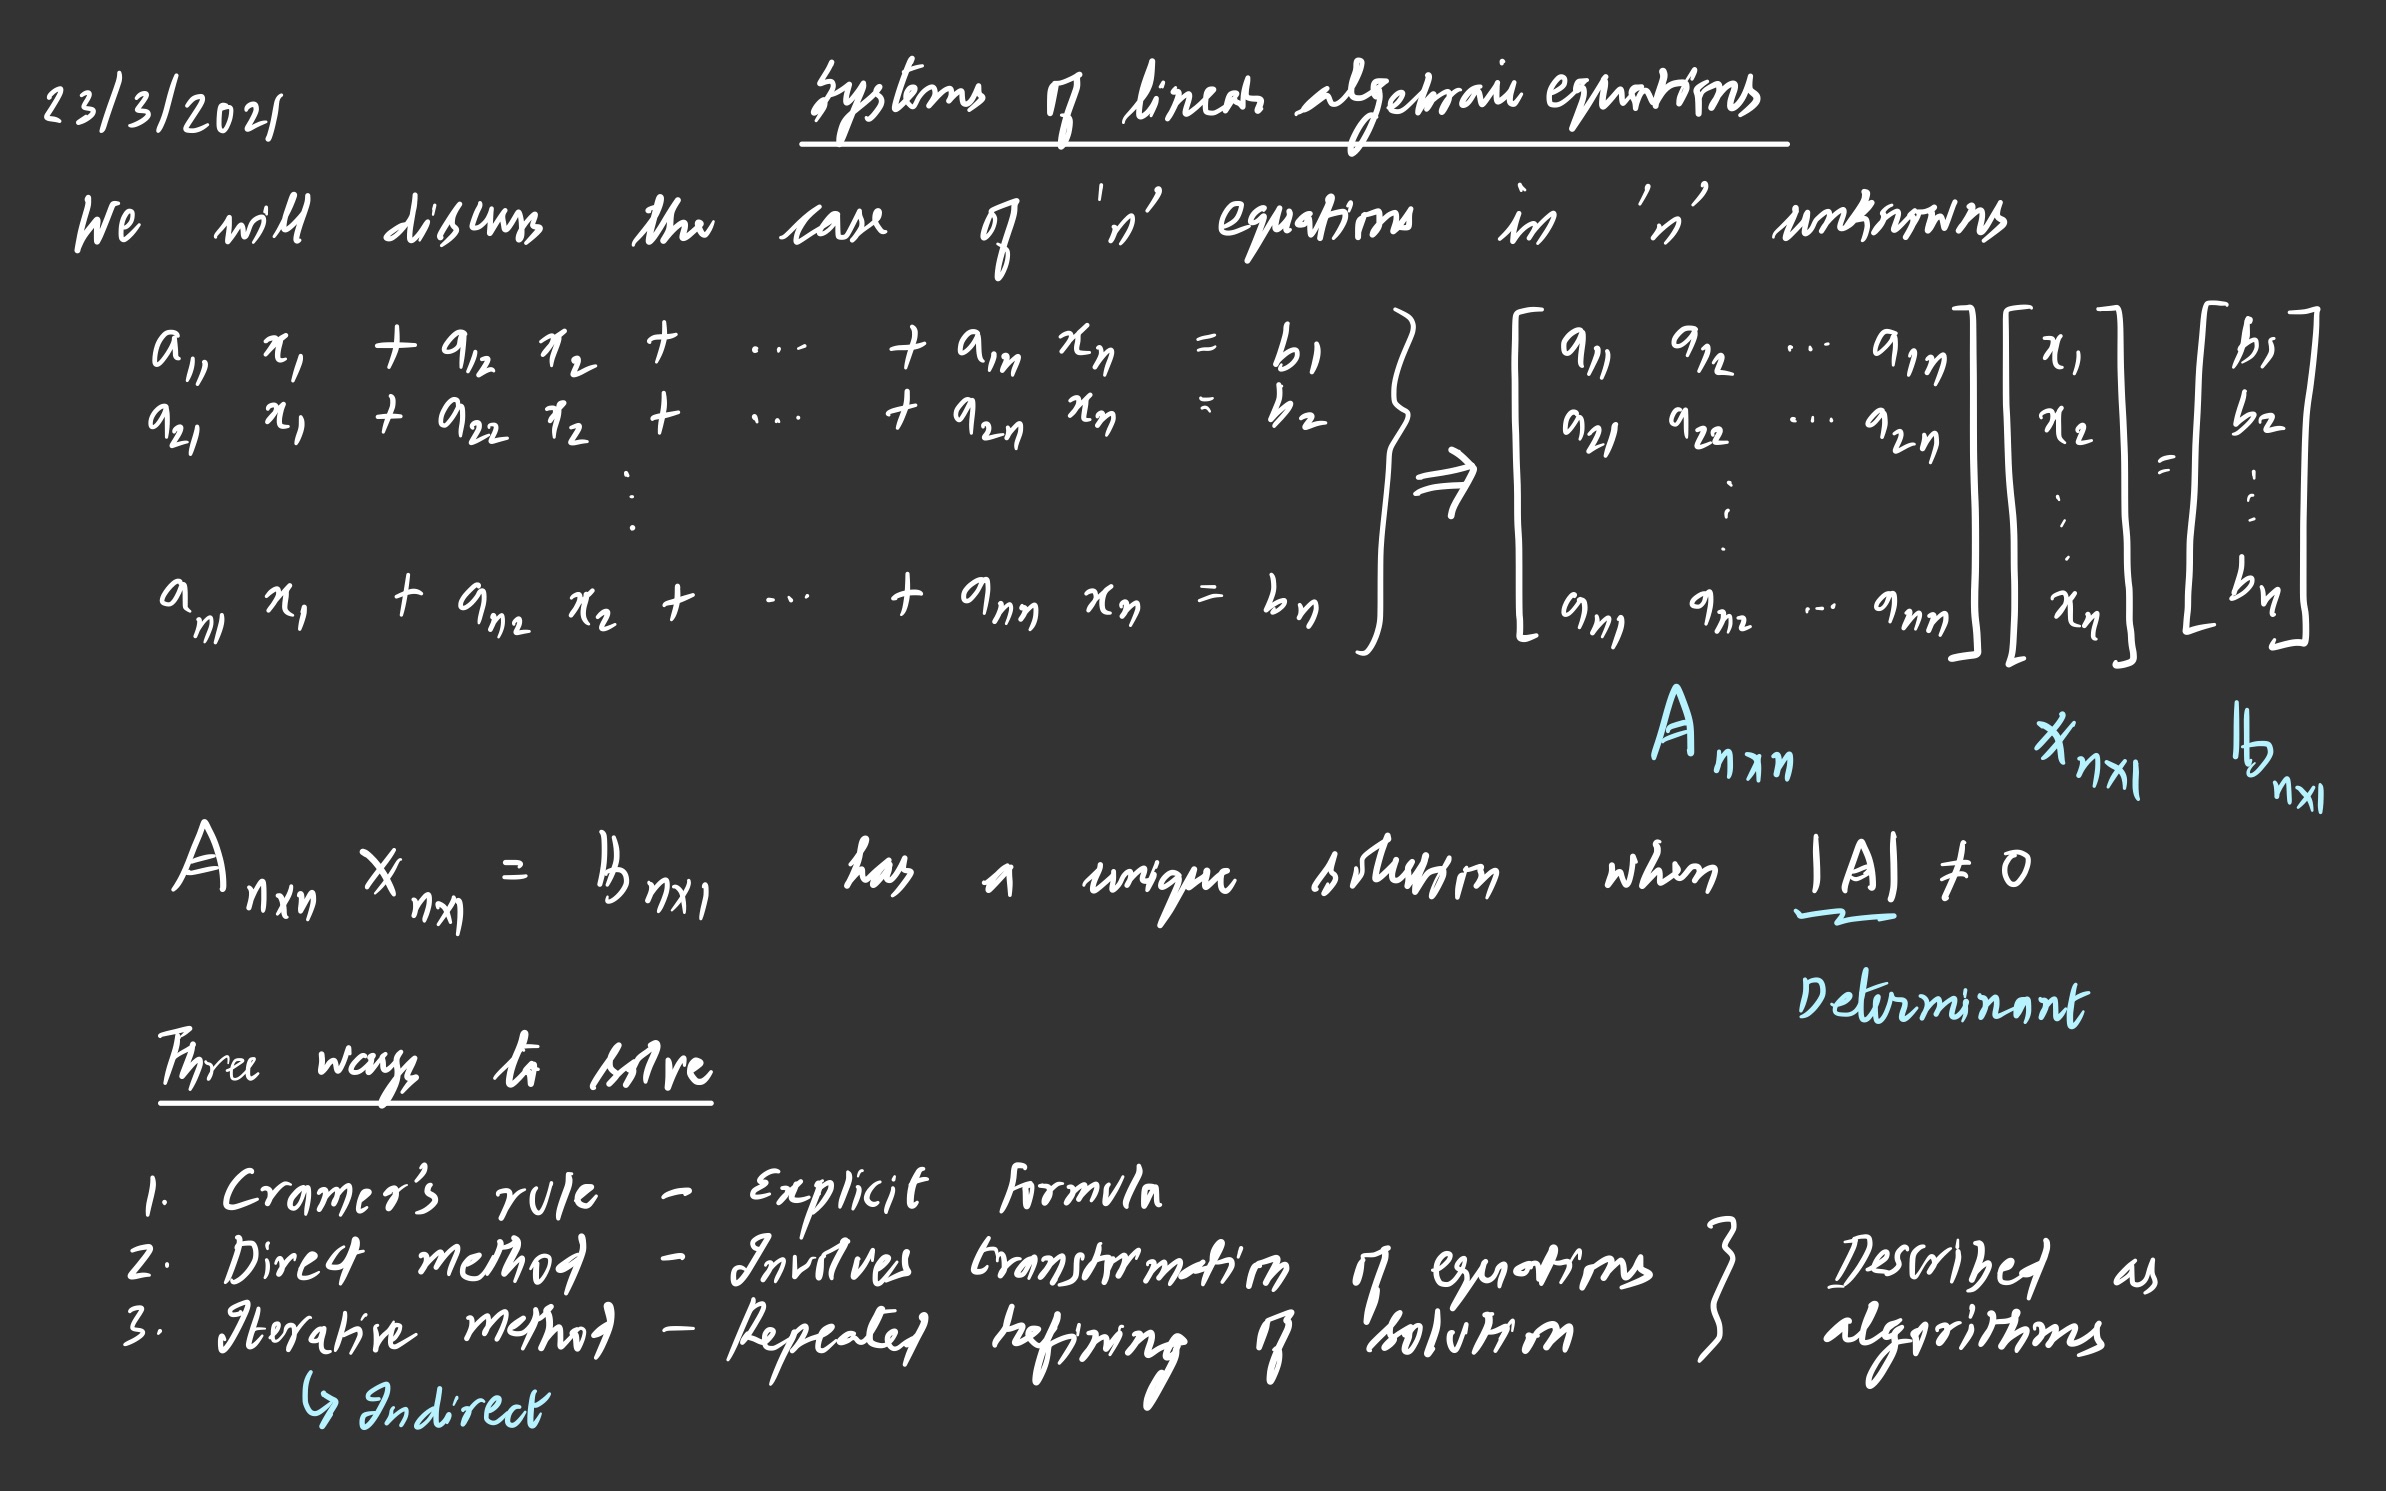 23/3/2021 Systems of linear algebraic equations
We will discuss the case of 'n' equations in 'n' unknowns
a₁₁ x₁ + a₁₂ x₂ + ... + a₁ₙ xₙ = b₁
a₂₁ x₁ + a₂₂ x₂ + ... + a₂ₙ xₙ = b₂
⋮
aₙ₁ x₁ + aₙ₂ x₂ + ... + aₙₙ xₙ = bₙ
⇒
[a₁₁ a₁₂ ... a₁ₙ] [x₁] = [b₁]
[a₂₁ a₂₂ ... a₂ₙ] [x₂] [b₂]
⋮ ⋮ ⋮
[aₙ₁ aₙ₂ ... aₙₙ] [xₙ] [bₙ]
A n×n x n×1 b n×1
A n×n x n×1 = b n×1 has a unique solution when |A| ≠ 0
Determinant
Three ways to solve
1. Cramer's rule - Explicit formula
2. Direct method - Involves transformation of equations
3. Iterative method - Repeated refining of solution
} Described as
algorithms
↳ Indirect